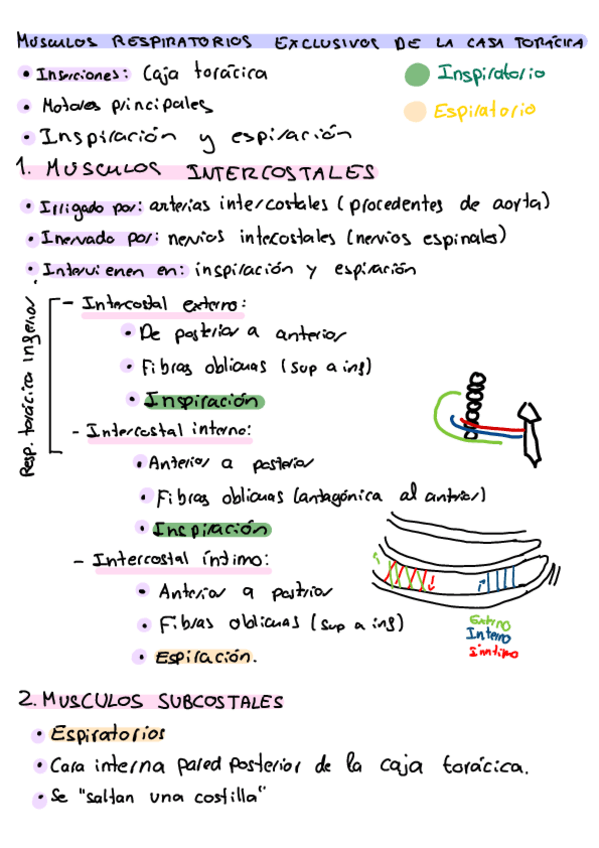 MUSCULOS RESPIRATORIOS EXCLUSIVOS DE LA CASA TORÁCICA
• Inserciones: Caja torácica
Inspiratorio
• Motores principales
Espiratorio
• Inspiración y espiración
1. MUSCULOS INTERCOSTALES
• Irrigado por: arterias intercostales (procedentes de aorta)
• Inervado por: nervios intecostales (nervios espinales)
• Intervienen en: inspiración y espiración
Resp. torácica inferior
- Intercostal externo:
• De posterior a anterior
• Fibras oblicuas (sup a inf)
• Inspiración
- Intercostal interno:
• Anterior a posterior
• Fibras oblicuas (antagónica al antrior)
• Inspiración
- Intercostal íntimo:
• Anterior a postrior
• Fibras oblicuas (sup a inf)
• Espiración.
Externo
Interno
Íntimo
2. MUSCULOS SUBCOSTALES
• Espiratorios
• Cara interna pared posterior de la caja torácica.
• Se "saltan una costilla"